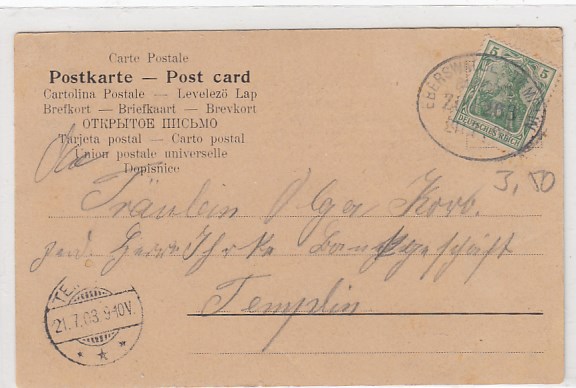 Carte Postale
Postkarte — Post card
Cartolina Postale — Levelező Lap
Brefkort — Briefkaart — Brevkort
ОТКРЫТОЕ ПИСЬМО
Tarjeta postal — Carto postal
Union postale universelle
Dopisnice
5 5
DEUTSCHES REICH
3,50
An
Fräulein Olga Korb.
Herrn Ihrke Bankgeschäft
Templin
21.7.03. 9-10V.